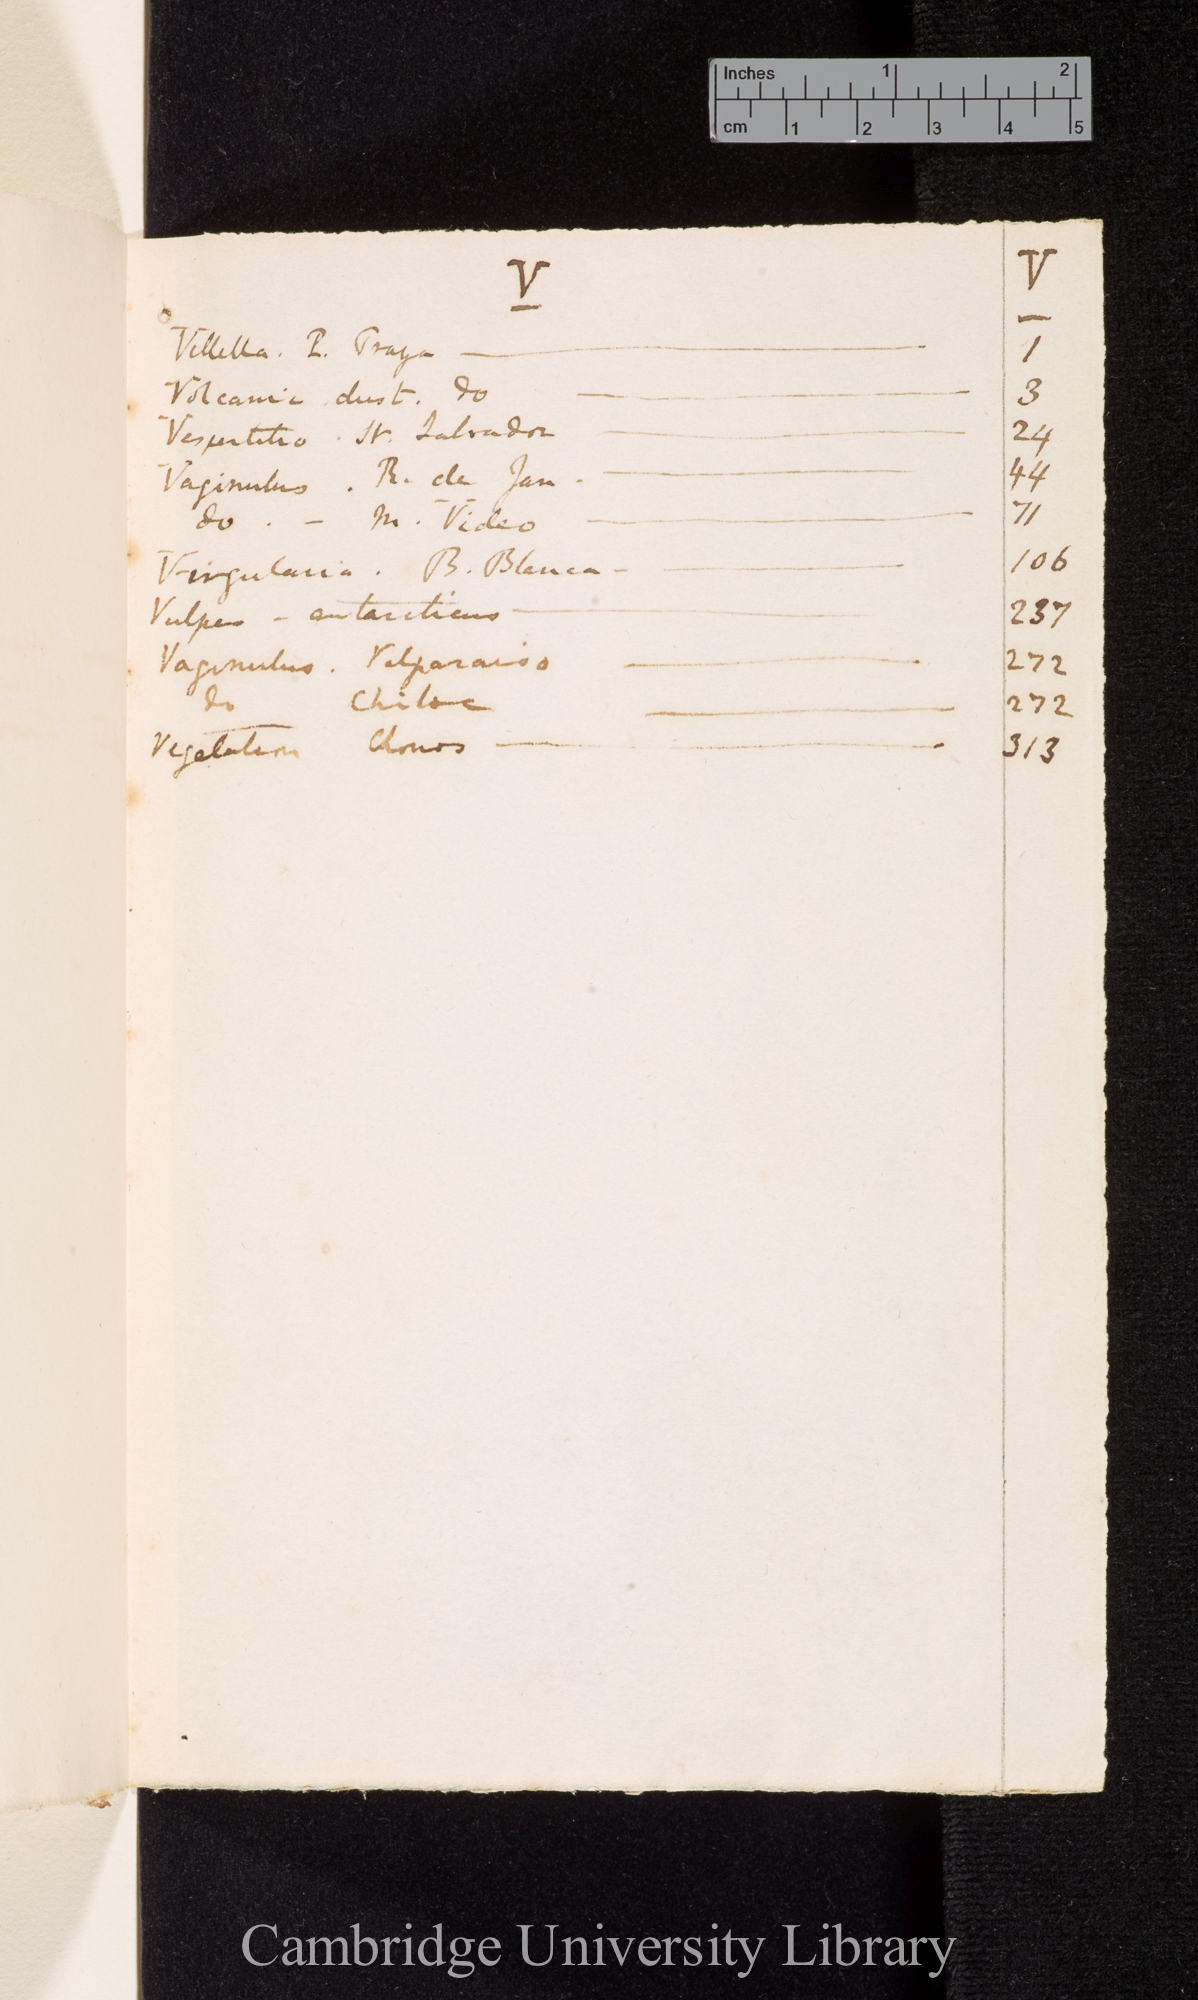 Inches 1 2
cm 1 2 3 4 5
V V
Velella. P. Praya — 1
Volcanic dust. do — 3
Vespertilio. St. Salvador — 24
Vaginulus. R. de Jan. — 44
do. — M. Video — 71
Virgularia. B. Blanca — 106
Vulpes — antarcticus — 237
Vaginulus. Valparaiso — 272
do Chiloe — 272
Vegetation Chonos — 313
Cambridge University Library